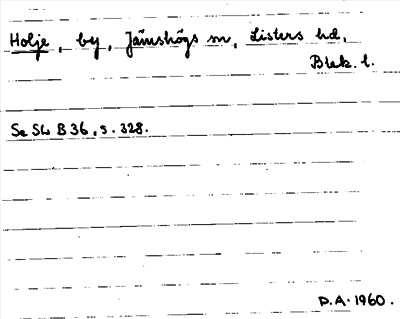 Holje, by, Jämshögs sn, Listers hd,
Blek. l.
Se Sk B 36, s. 328.
P.A. 1960.